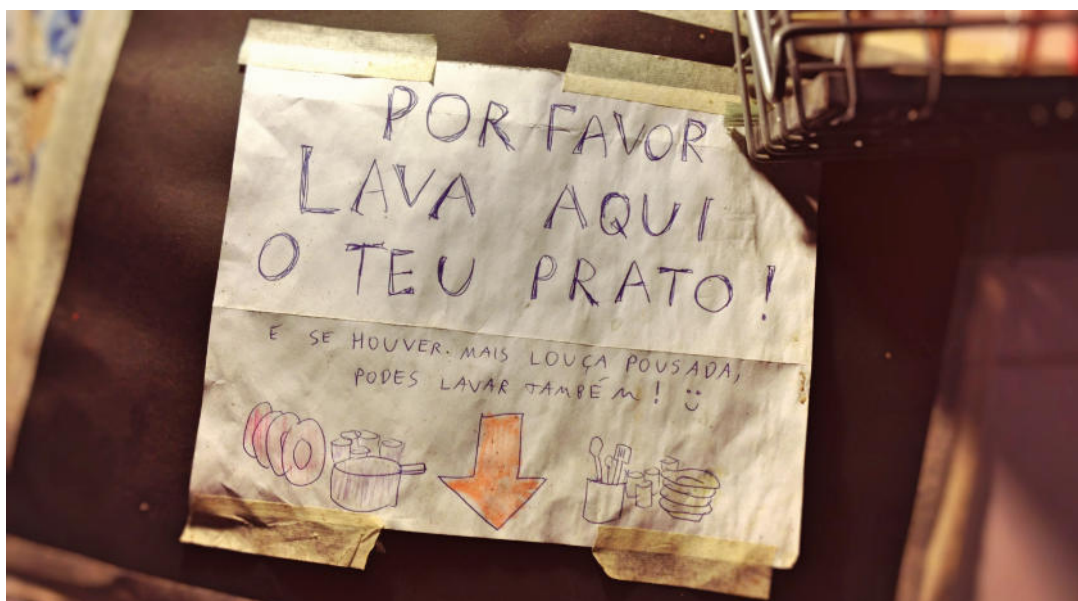 POR FAVOR
LAVA AQUI
O TEU PRATO!
E SE HOUVER. MAIS LOUÇA POUSADA,
PODES LAVAR TAMBÉM! :)